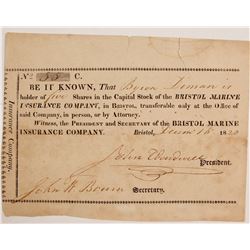 No 55 C.
BE IT KNOWN, That Byron Diman is
holder of five Shares in the Capital Stock of the BRISTOL MARINE
INSURANCE COMPANY, in Bristol, transferable only at the Office of
said Company, in person, or by Attorney.
Witness, the PRESIDENT and SECRETARY of the BRISTOL MARINE
INSURANCE COMPANY. Bristol, 18
President.
John W. Bourn
Secretary.
Insurance Company.